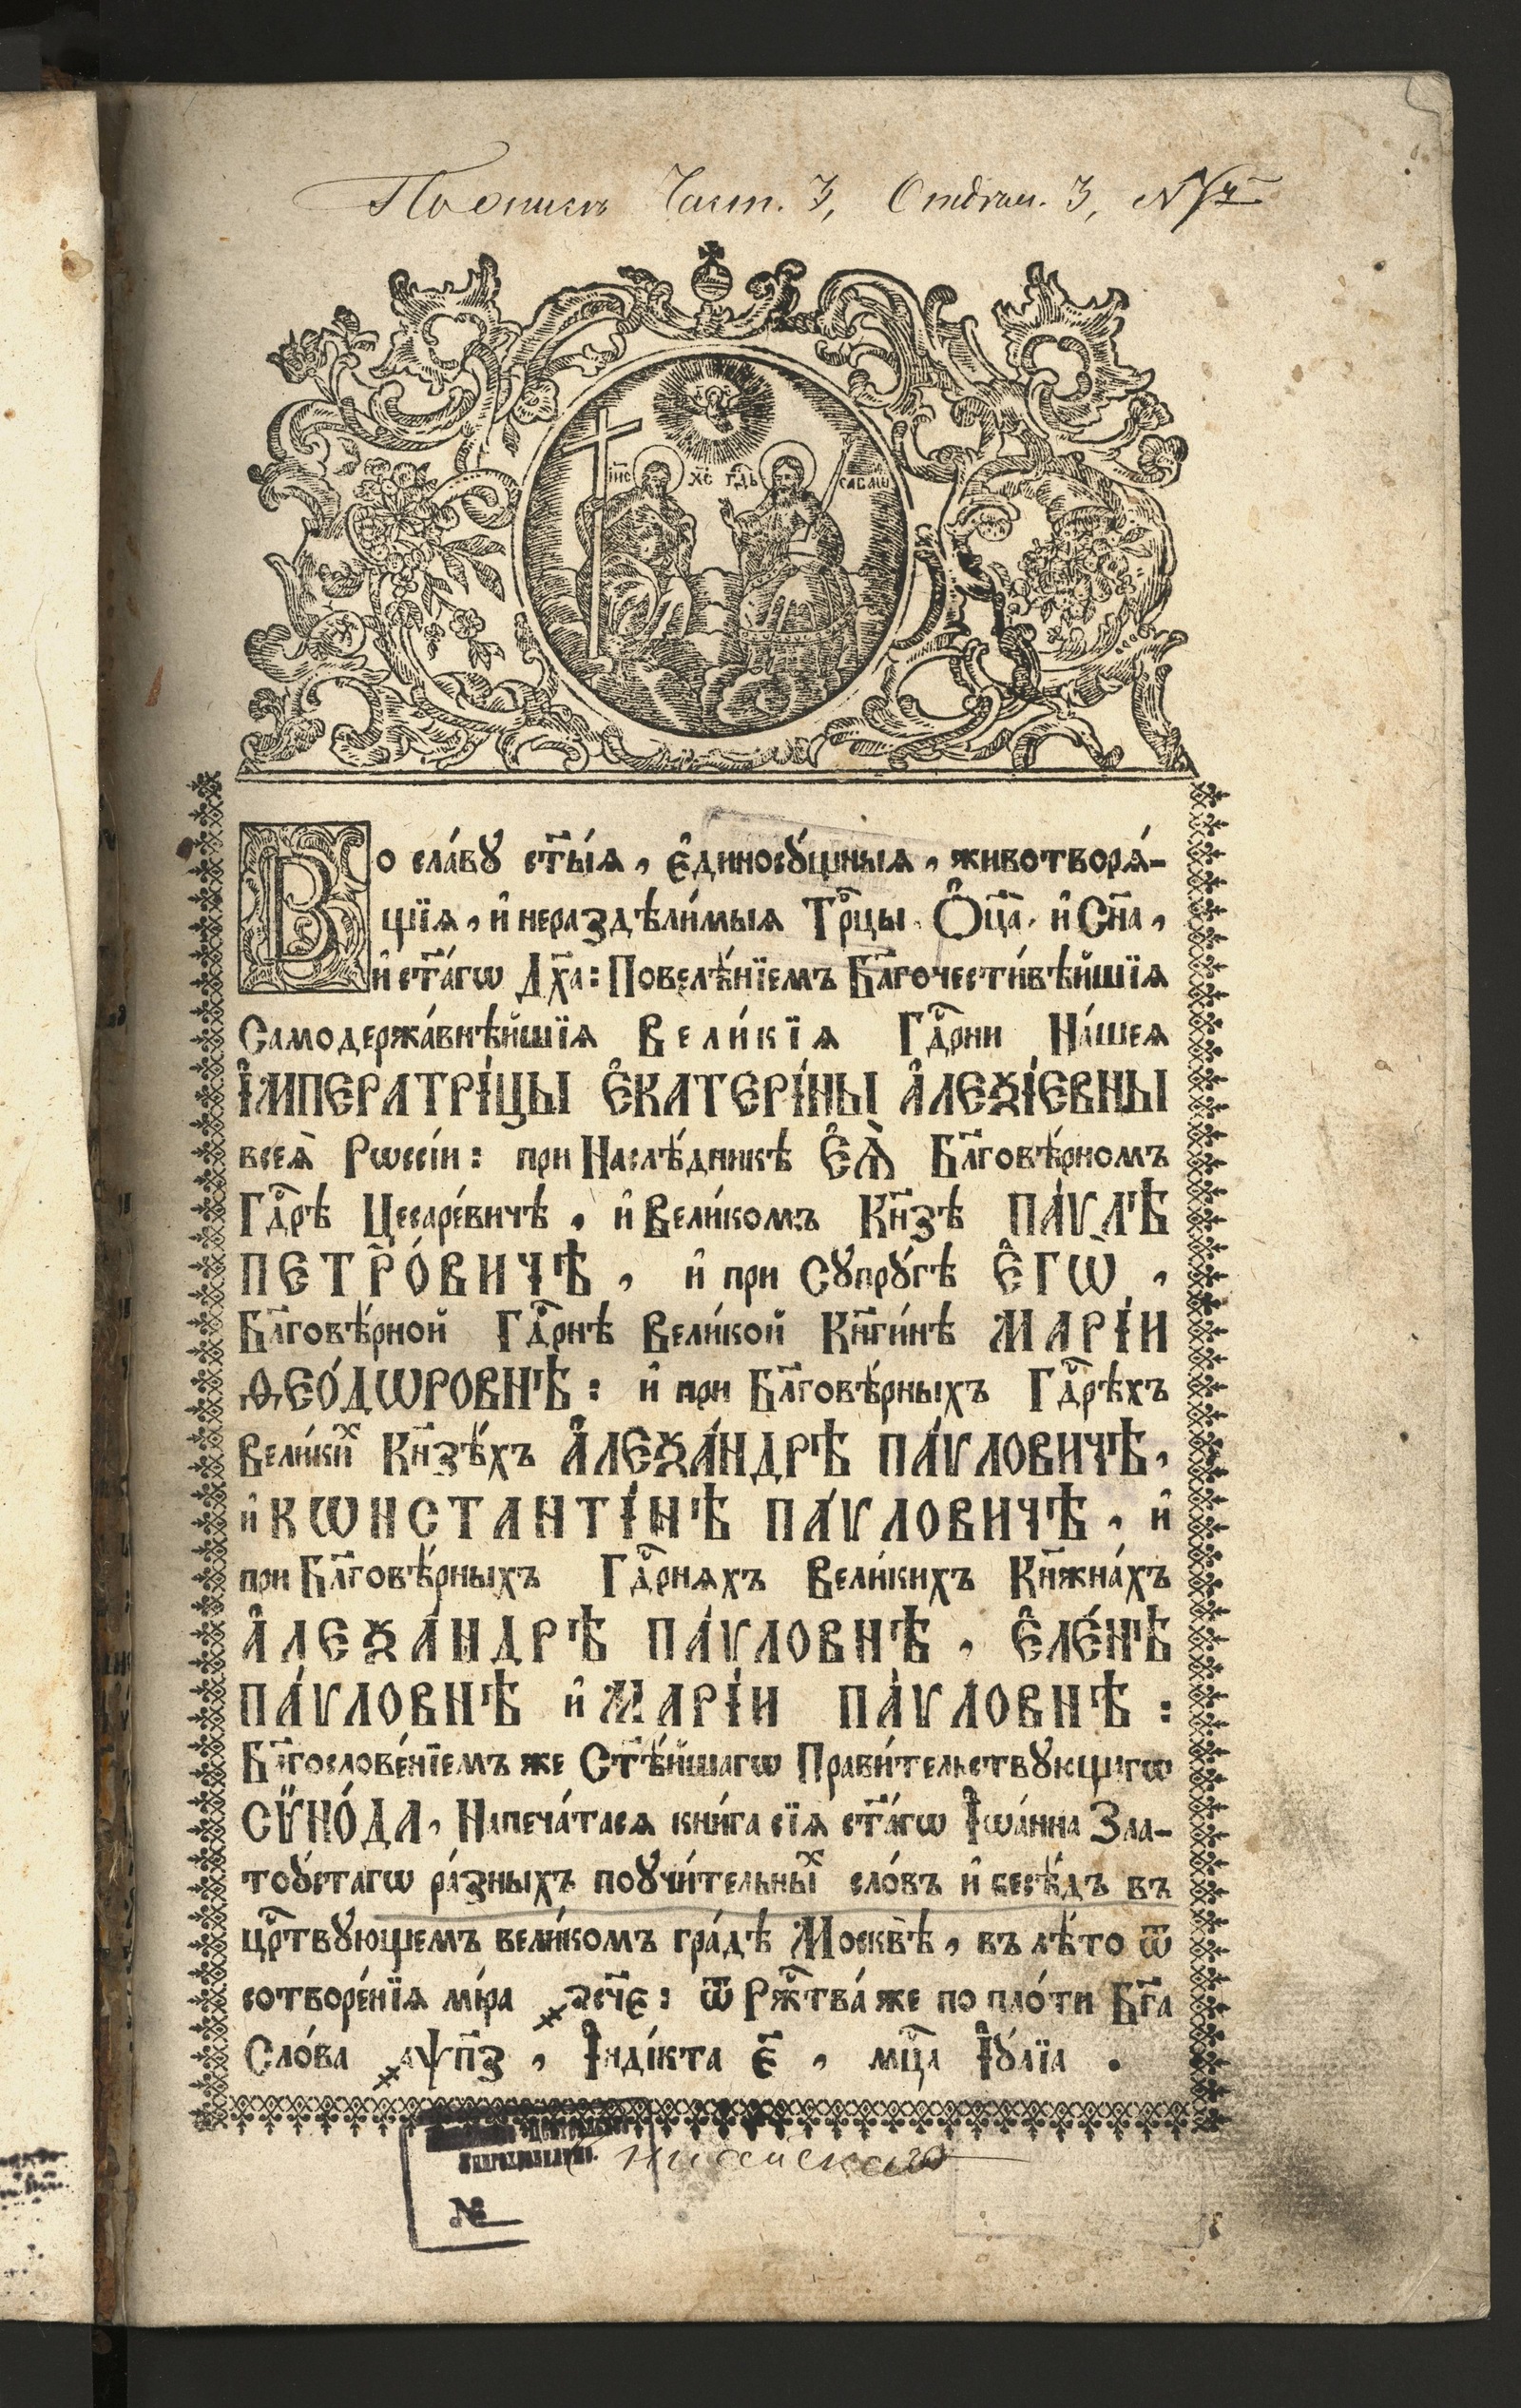 Част. 3,
І҆И҃С Х҃С Гд҇ь саваѡ
Во сла́вꙋ ст҃ы́ѧ, є҆диносꙋ́щныѧ, животворѧ́-
щїѧ, и҆ нераздѣли́мыѧ Трⷪ҇цы Ѻ҆ц҃а̀ и҆ Сн҃а,
и҆ ст҃а́гѡ Дх҃а: Повелѣ́нїемъ Бл҃гочести́вѣйшїѧ
Самодержа́внѣйшїѧ Вели́кїѧ Гдⷭ҇рни На́шеѧ
І҆МПЕРАТРІ́ЦЫ Є҆КАТЕРІ́НЫ А҆ЛЕѮІ́ЕВНЫ
всеѧ̀ Рѡссі́и: при Наслѣ́дникѣ Є҆Ѧ̀ Бл҃говѣ́рномъ
Гдⷭ҇рѣ Цесаре́вичѣ, и҆ Вели́комъ Кн҃зѣ ПА́ѴЛѢ
ПЕТРО́ВИЧѢ, и҆ при Сꙋпрꙋ́гѣ Є҆ГѠ̀,
Бл҃говѣ́рной Гдⷭ҇рнѣ Вели́кой Кн҃ги́нѣ МАРІ́И
ѲЕО́ДѠРОВНѢ: и҆ при Бл҃говѣ́рныхъ Гдⷭ҇рѣхъ
Вели́киⷯ Кн҃зѣ́хъ А҆ЛЕѮА́НДРѢ ПА́ѴЛОВИЧѢ,
и҆ КѠНСТАНТІ́НѢ ПА́ѴЛОВИЧѢ, и҆
при Бл҃говѣ́рныхъ Гдⷭ҇рнѧхъ Вели́кихъ Кн҃жна́хъ
А҆ЛЕѮА́НДРѢ ПА́ѴЛОВНѢ, Є҆ЛЕ́НѢ
ПА́ѴЛОВНѢ и҆ МАРІ́И ПА́ѴЛОВНѢ:
Бл҃гослове́нїемъ же Ст҃ѣ́йшагѡ Прави́тельствꙋющагѡ
СѴ̈НО́ДА, Напеча́тасѧ кни́га сїѧ ст҃а́гѡ І҆ѡа́нна Зла-
тоꙋ́стагѡ ра́зныхъ поꙋчи́тельныⷯ сло́въ и҆ бесѣ́дъ въ
црⷭ҇твꙋющемъ вели́комъ гра́дѣ Москвѣ̀, въ лѣ́то ѿ
сотворе́нїѧ мі́ра ҂зсч҃е: ѿ Ржⷭ҇тва́ же по пло́ти Бг҃а
Сло́ва ҂аѱп҃з, І҆нді́кта є҃, мцⷭ҇а І҆ꙋ́лїа.
№